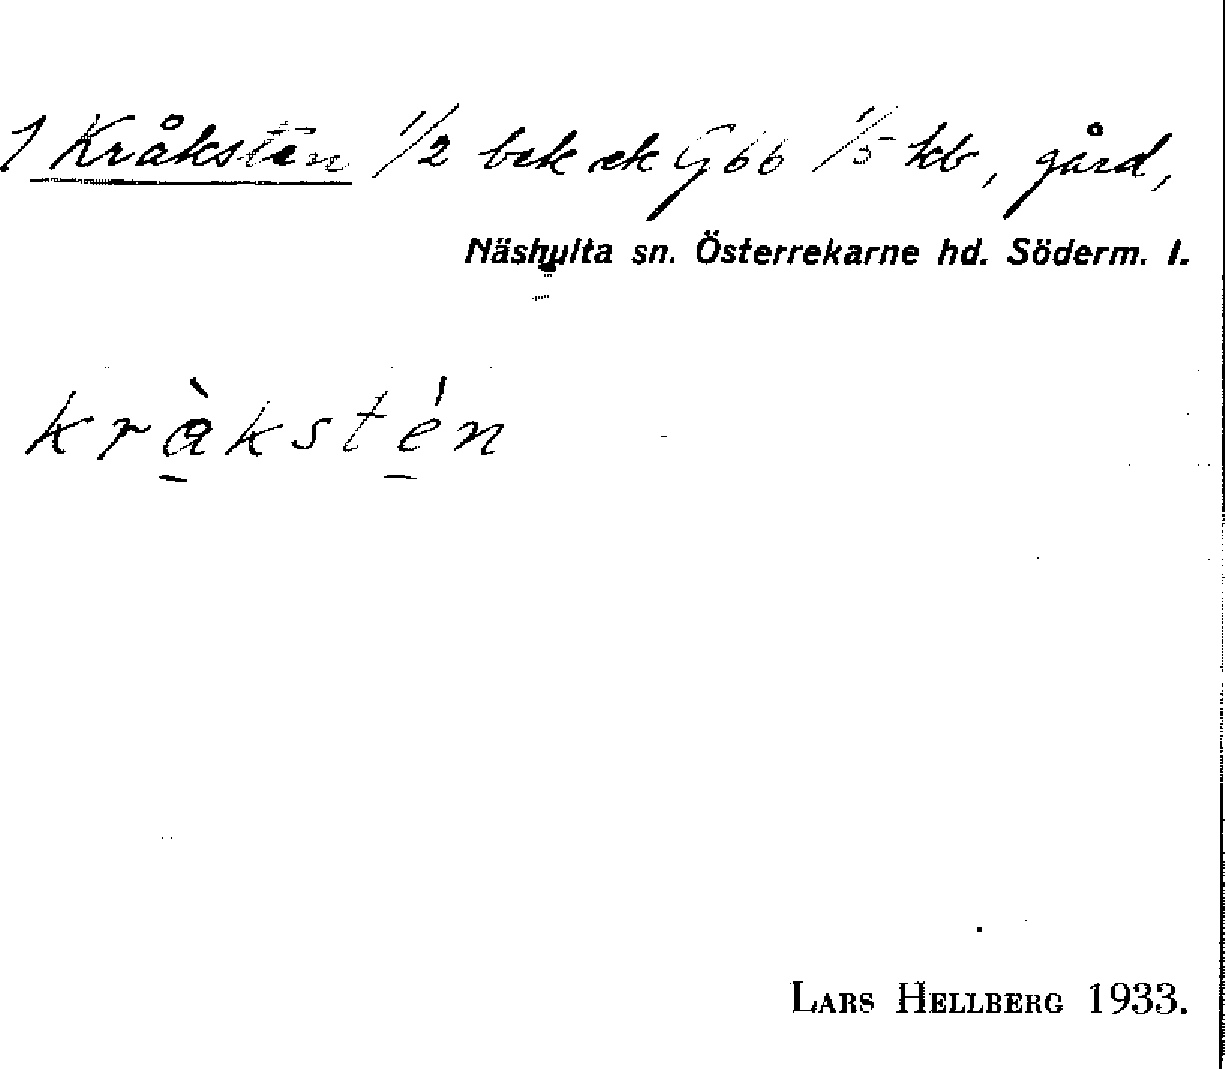 1 Kråksten 1/2 bek ek G 66 1/5 kb, gård,
Näshulta sn. Österrekarne hd. Söderm. l.
kràkstén
LARS HELLBERG 1933.